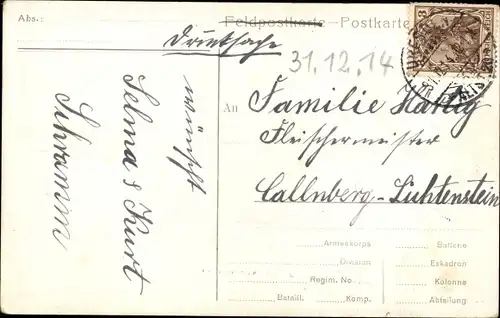 Abs.:
Feldpostkarte - Postkarte
Drucksache
31.12.14
wünscht
Selma & Kurt
Schramm
An
Familie
Fleischermeister
Callnberg-Lichtenstein
Armeekorps
Batterie
Division
Eskadron
Regim. No.
Kolonne
Bataill.
Komp.
Abteilung
3